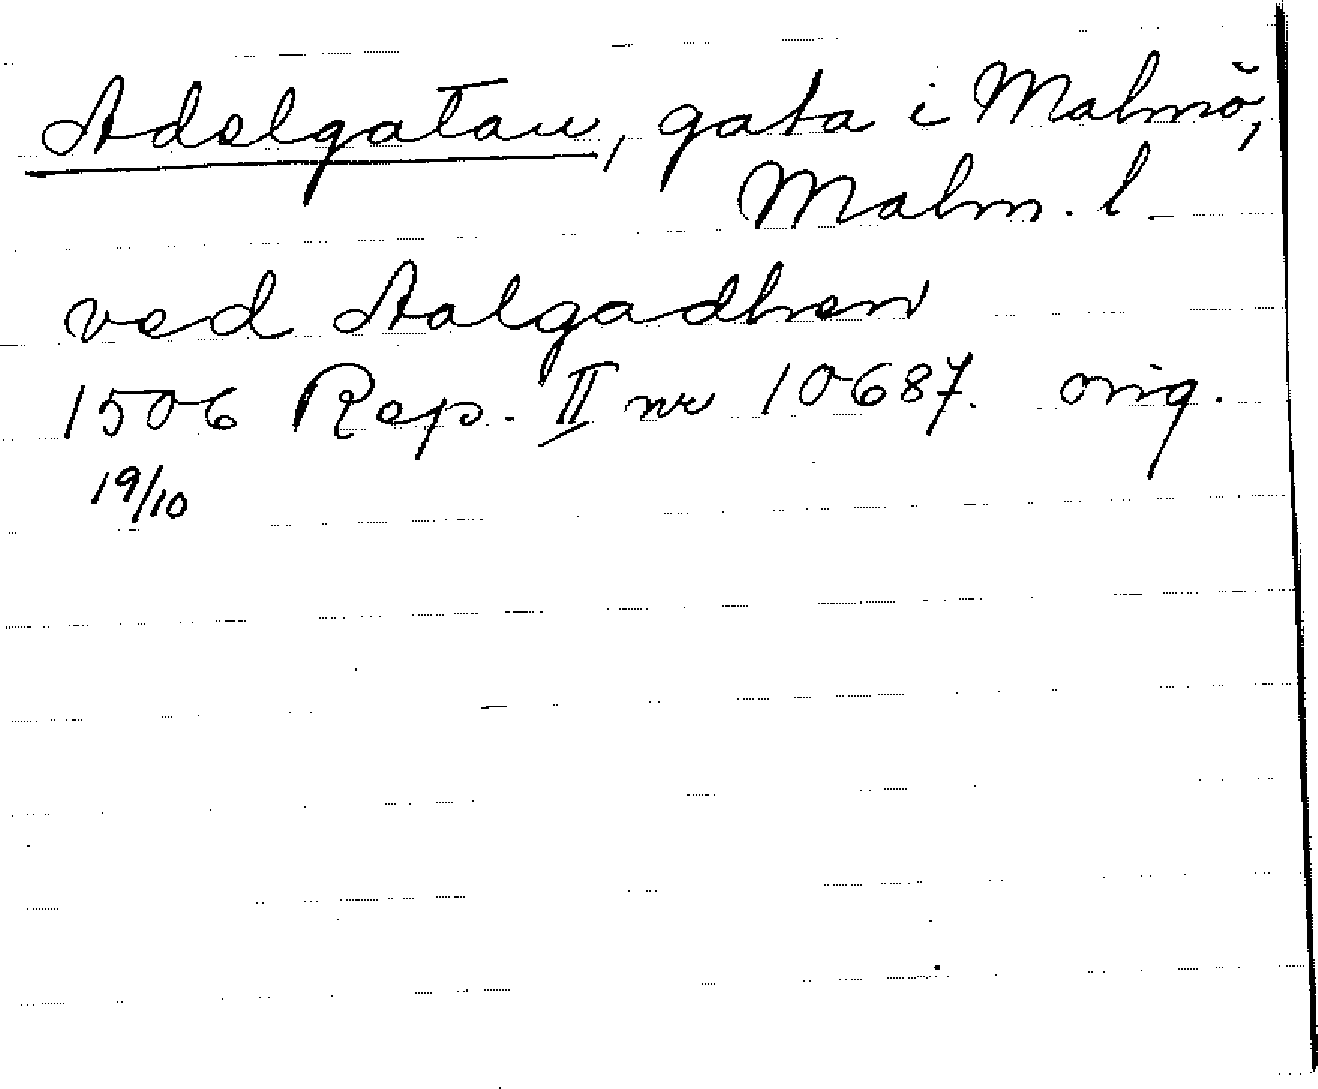 Adelgatan, gata i Malmö,
Malm. l.
ved Aalgadhen
1506 Rep. II nr 10687. orig.
19/10